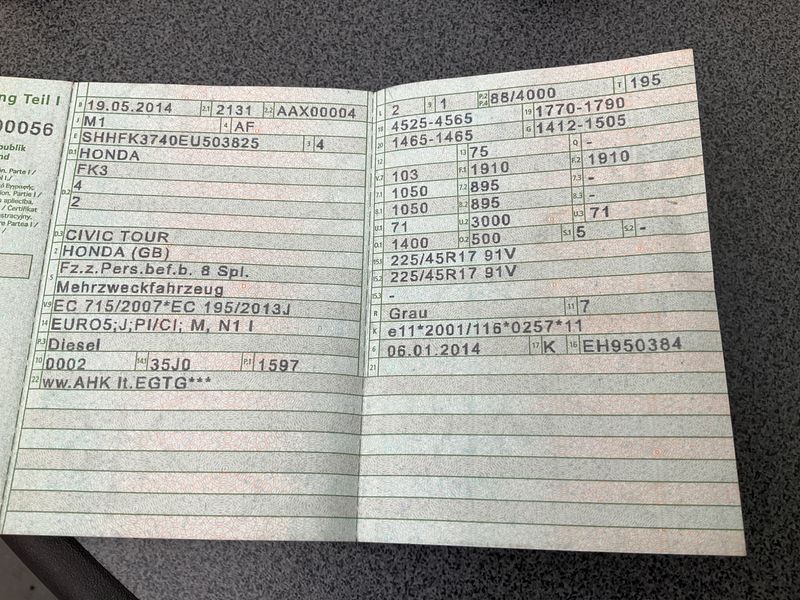 ng Teil I
00056
publik
nd
on. Parte I /
l I /
ion. Partie I /
s apliecība.
/ Certifikat
stracyjny.
re Partea I /
B 19.05.2014 2.1 2131 2.2 AAX00004
J M1 4 AF
E SHHFK3740EU503825 3 4
D.1 HONDA
D.2 FK3
4
2
D.3 CIVIC TOUR
2 HONDA (GB)
5 Fz.z.Pers.bef.b. 8 Spl.
Mehrzweckfahrzeug
V.9 EC 715/2007*EC 195/2013J
14 EURO5;J;PI/CI; M, N1 I
P.3 Diesel
10 0002 14.1 35J0 P.1 1597
22 ww.AHK lt.EGTG***
L 2 9 1 P.2 P.4 88/4000 T 195
18 4525-4565 19 1770-1790
20 1465-1465 G 1412-1505
12 13 75 Q -
V.7 103 F.1 1910 F.2 1910
7.1 1050 7.2 895 7.3 -
8.1 1050 8.2 895 8.3 -
U.1 71 U.2 3000 U.3 71
O.1 1400 O.2 500 S.1 5 S.2 -
15.1 225/45R17 91V
15.2 225/45R17 91V
15.3 -
R Grau 11 7
K e11*2001/116*0257*11
6 06.01.2014 17 K 16 EH950384
21